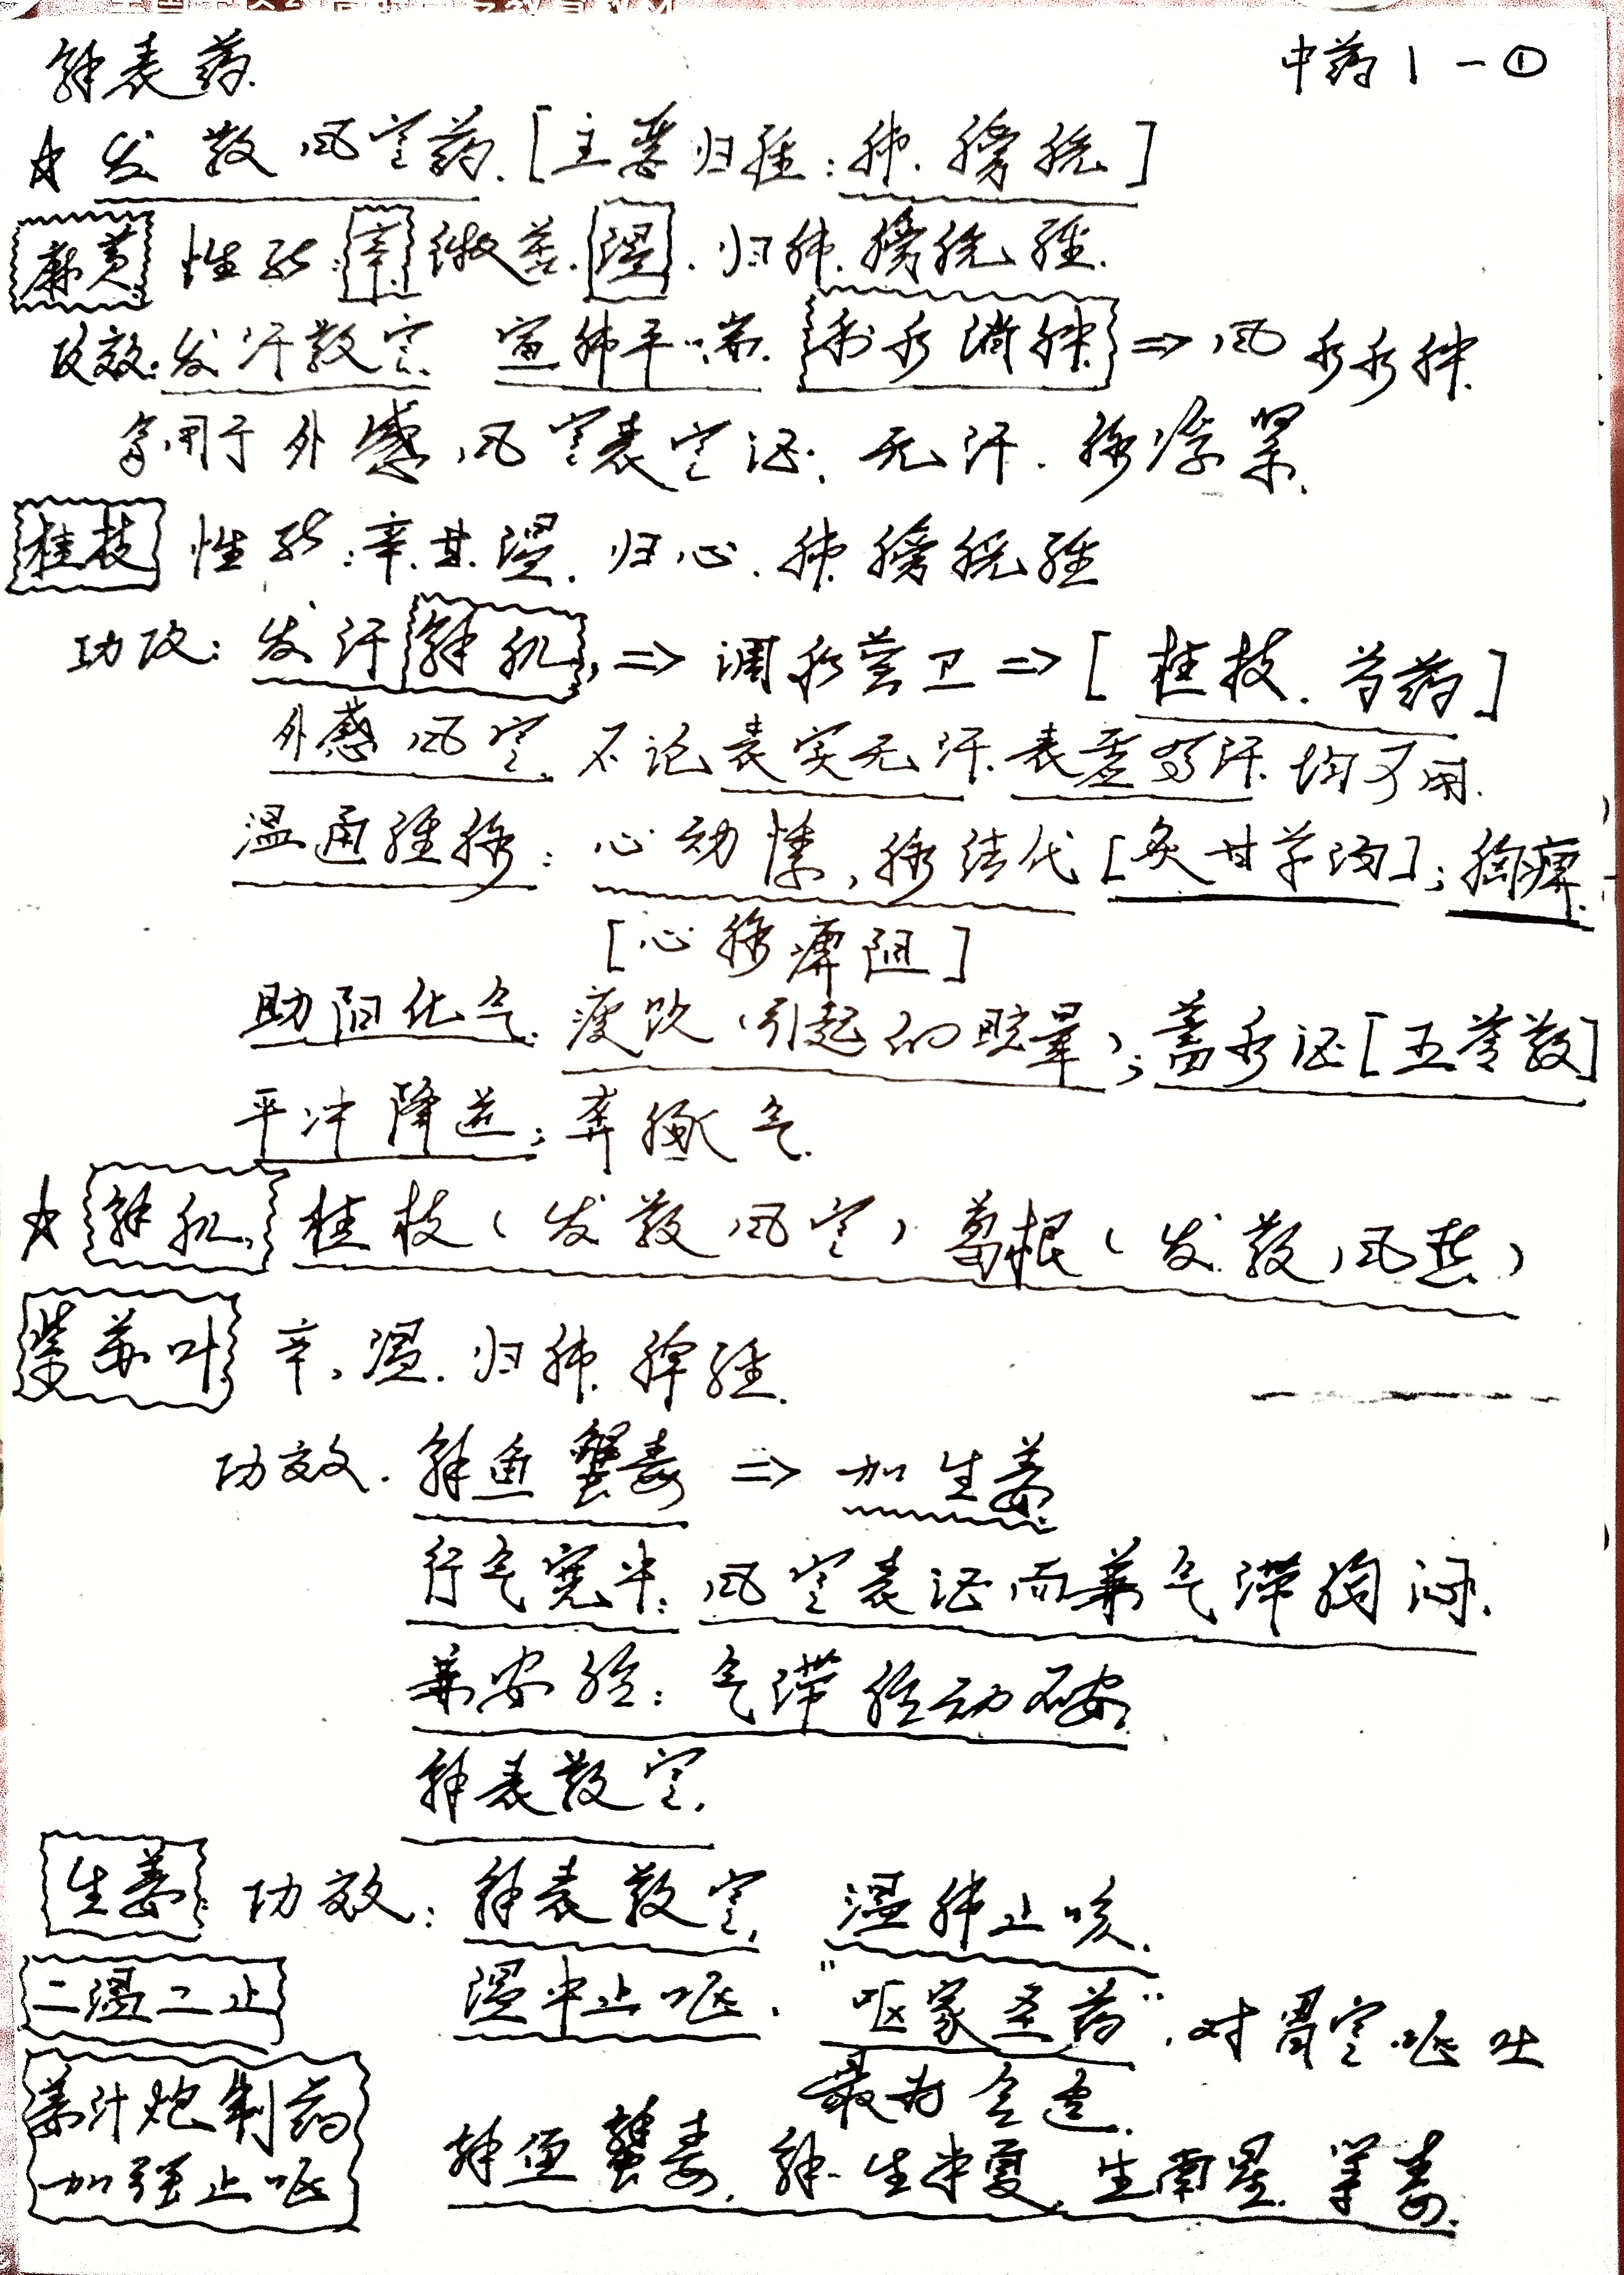 解表药.
中药1-①
☆ 发散风寒药.[主要归经:肺.膀胱]
麻黄 性能:辛 微苦.温.归肺.膀胱经.
功效:发汗散寒 宣肺平喘.利水消肿⇒风水水肿.
多用于外感风寒表实证.无汗.脉浮紧.
桂枝 性能:辛.甘.温.归心.肺.膀胱经
功效:发汗解肌,⇒调和营卫⇒[桂枝.芍药]
外感风寒.不论表实无汗.表虚有汗.均可用.
温通经脉:心动悸,脉结代[炙甘草汤];胸痹.
[心脉痹阻]
助阳化气:痰饮(引起的眩晕);蓄水证[五苓散]
平冲降逆:奔豚气.
☆ 解肌.桂枝(发散风寒)葛根(发散风热)
紫苏叶 辛,温.归肺.脾经.
功效.解鱼蟹毒⇒加生姜.
行气宽中:风寒表证而兼气滞胸闷.
兼安胎:气滞胎动不安.
解表散寒.
生姜:功效:解表散寒.温肺止咳.
二温二止 温中止呕."呕家圣药".对胃寒呕吐
最为合适.
姜汁炮制药
加强止呕
解鱼蟹毒.解.生半夏.生南星.等毒.